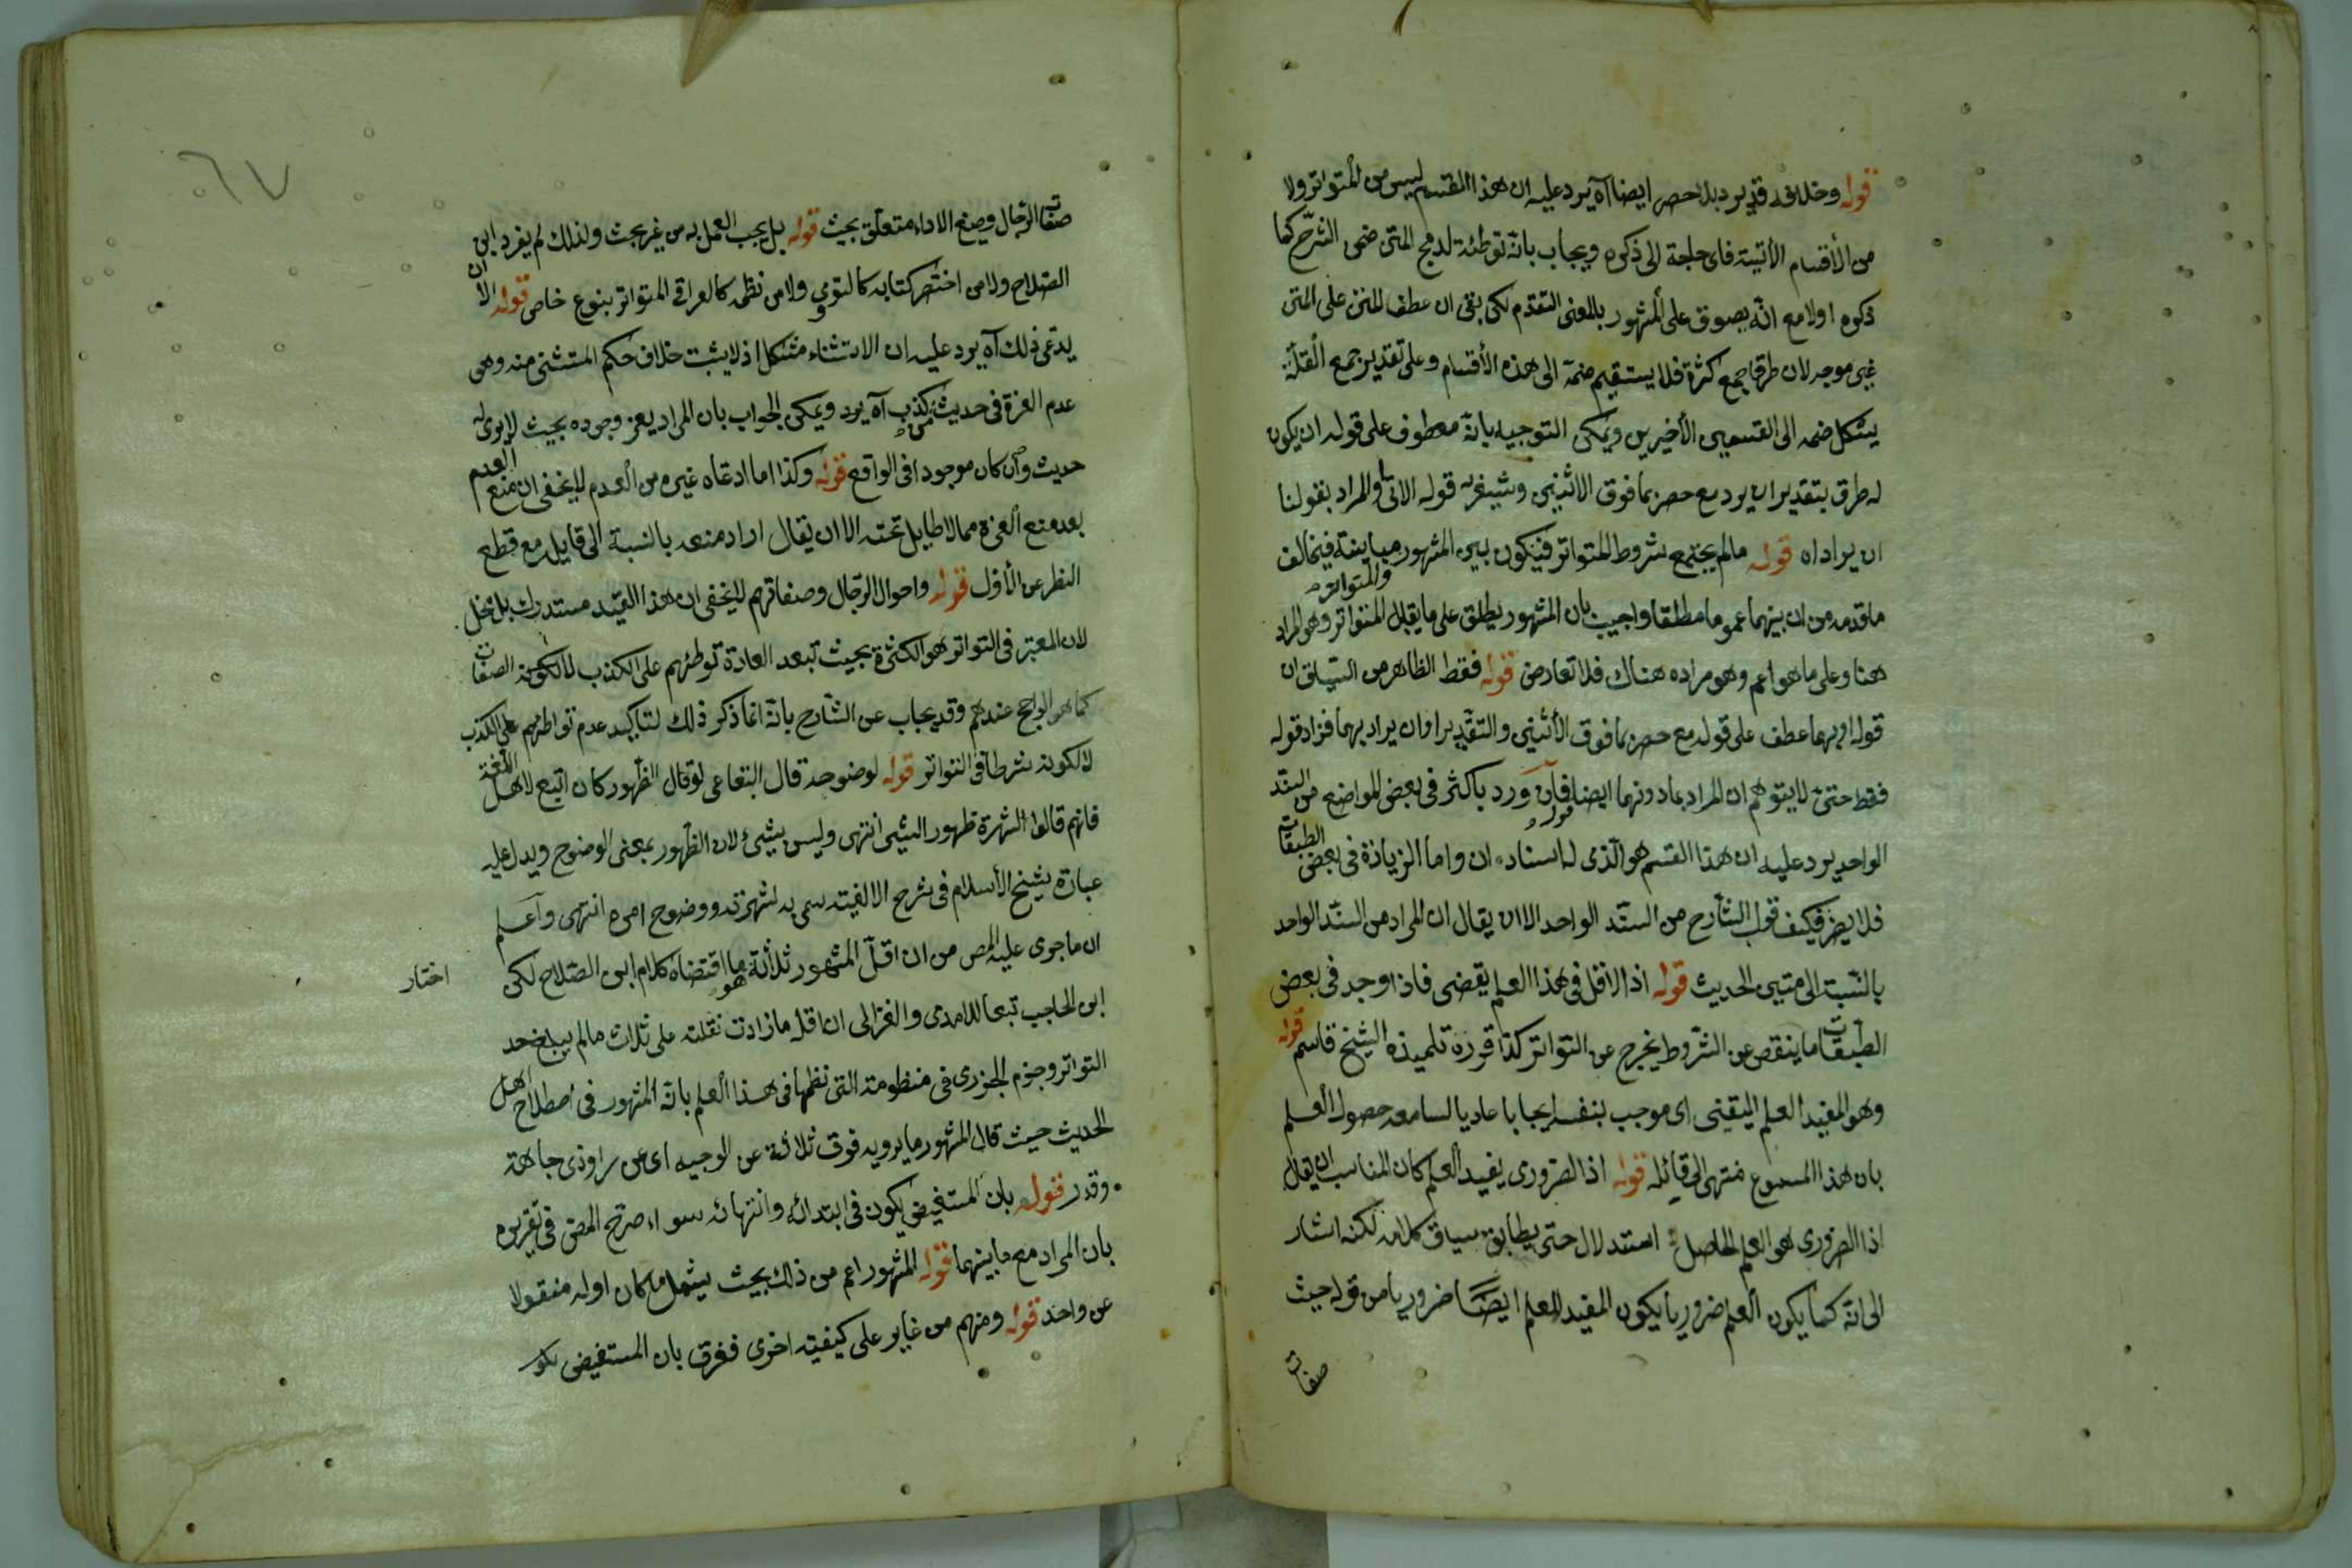 قوله وخلافه قد يرد بلا حصر ايضا اه يرد عليه ان هذا القسم ليس من المتواتر ولا
من الأقسام الأتية فاى حاجة الى ذكره ويجاب بانه توطئة لدمج المتن ضمن الشرح كما
ذكره اولا مع انه يصدق على المشهور بالمعنى المتقدم لكن بقى ان عطف المتن على المتن
غير موجه لان طرقا جمع كثرة فلا يستقيم ضمه الى هذه الأقسام وعلى تقدير جمع القلة
يشكل ضمه الى القسمين الأخيرين ويمكن التوجيه بانه معطوف على قوله ان يكون
له طرق بتقدير ان يرد مع حصر بما فوق الاثنين وسيشعر به قوله الاتى والمراد بقولنا
ان يرد اه قوله ما لم يجتمع شروط المتواتر فيكون بين المشهور والمتواتر مباينة فيخالف
ما قدمه من ان بينهما عموما مطلقا واجيب بان المشهور يطلق على ما يقابل المتواتر وهو المراد
هنا وعلى ما هو اعم وهو مراده هناك فلا تعارض قوله فقط الظاهر من السياق ان
قوله او بهما عطف على قوله مع حصر بما فوق الأثنين والتقدير او ان يراد بهما فزاد قوله
فقط حتى لا يتوهم ان المراد بما دونهما ايضا قوله فان ورد باكثر فى بعض المواضع من السند
الواحد يرد عليه ان هذا القسم هو الذى له اسنادان واما الزيادة فى بعض الطبقات
فلا يضر فكيف قول الشارح من السند الواحد الا ان يقال ان المراد من السند الواحد
بالنسبة الى متنين الحديث قوله اذ الاقل فى هذا العلم يقضى فاذا وجد فى بعض
الطبقات ما ينقص عن الشروط يخرج عن التواتر كذا قرره تلميذه الشيخ قاسم قوله
وهو المفيد العلم اليقينى اى موجب بنفسه ايجابا عاديا لسامعه حصول العلم
بان هذا المسموع منتهى الى قائله قوله اذ الضرورى يفيد العلم كان المناسب ان يقال
اذ الضرورى هو العلم الحاصل استدلال حتى يطابق سياق كلامه لكنه اشار
الى انه كما يكون العلم ضروريا يكون المفيد للعلم ايضا ضروريا من قوله حيث
صفات
٦٧
صفات الرجال وصيغ الاداء متعلق بحيث قوله بل يجب العمل به من غير بحث ولذلك لم يفرد ابن
الصلاح ولا من اختصر كتابه كالنووى ولا من نظمه كالعراقى المتواتر بنوع خاص قوله الا ان
يدعى ذلك اه يرد عليه ان الاستثناء مشكل اذ لا يثبت خلاف حكم المستثنى منه وهى
عدم العزة فى حديث من كذب اه يرد ويمكن الجواب بان المراد يعز وجوده بحيث لا يرى له
حديث وان كان موجودا فى الواقع قوله وكذا ما ادعاه غيره من العدم لا يخفى ان منع العدم
بعد منع العزة مما لا طايل تحته الا ان يقال اراد منعه بالنسبة الى قايله مع قطع
النظر عن الأول قوله واحوال الرجال وصفاتهم لا يخفى ان هذا القيد مستدرك بل مخل
لان المعتبر فى التواتر هو الكثرة بحيث تبعد العادة توطئهم على الكذب لا لكونه الصفات
كما هو الراجح عندهم وقد يجاب عن الشارح بانه انما ذكر ذلك لتاكيد عدم تواطئهم على الكذب
لا لكونه شرطا فى التواتر قوله لوضوحه قال البقاعى لو قال الظهور كان اتبع لاهل اللغة
فانهم قالوا الشهرة ظهور الشيئ انتهى وليس بشيئ لان الظهور بمعنى الوضوح ويدل عليه
عبارة شيخ الأسلام فى شرح الالفية سمى به لشهرته ووضوح امره انتهى واعلم
ان ما جرى عليه المص من ان اقل المشهور ثلاثة هو ما اقتضاه كلام ابن الصلاح لكن اختار
ابن الحاجب تبعا للامدى والغزالى ان اقله ما زادت نقلته على ثلاث ما لم يبلغ حد
التواتر وجزم الجزرى فى منظومته التى نظمها فى هذا العلم بانه المشهور فى اصطلاح اهل
الحديث حيث قال المشهور ما يرويه فوق ثلاثة عن الوجيه اى عن راو ذى جاهة
وقدر قوله بان المستفيض يكون فى ابتدائه وانتهائه سواء صرح المص فى تقريره
بان المراد مع ما بينهما قوله المشهور اعم من ذلك بحيث يشمل ما كان اوله منقولا
عن واحد قوله ومنهم من غاير على كيفية اخرى ففرق بان المستفيض يكون